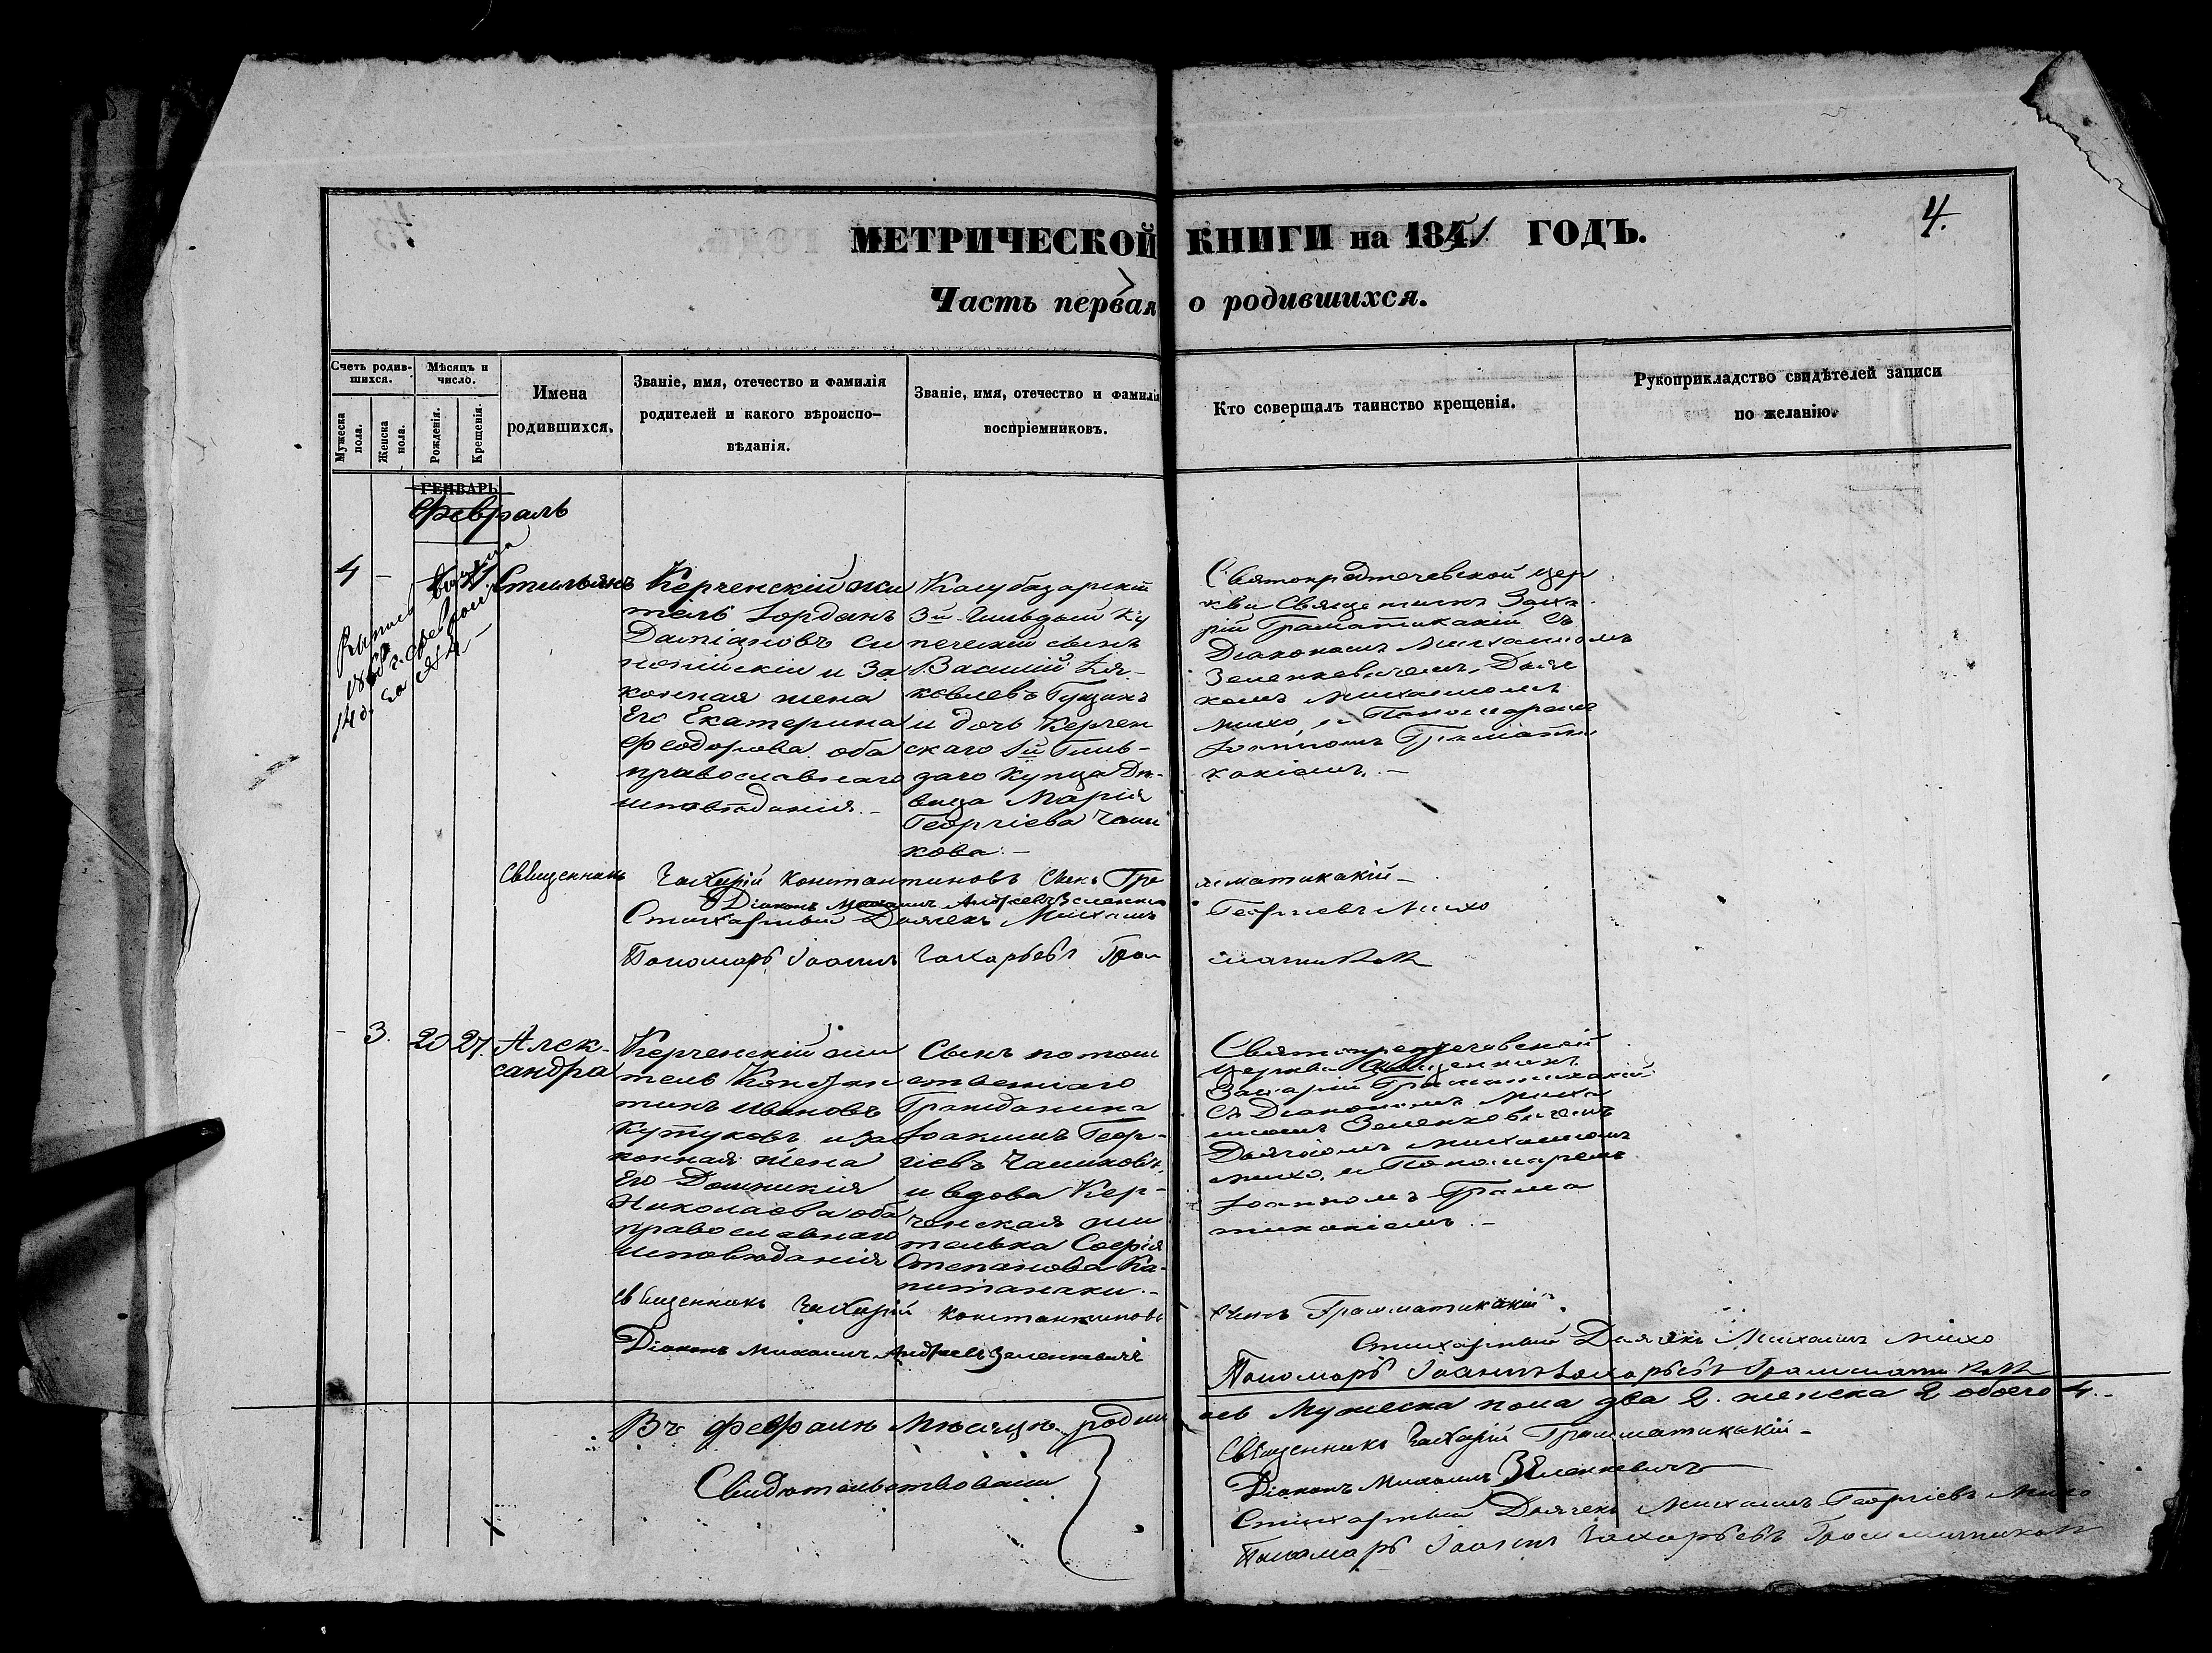 МЕТРИЧЕСКОЙ КНИГИ на 1851 ГОДЪ.
4.
Часть первая о родившихся.
Счетъ родив-
шихся.
Мужеска пола.
Женска пола.
Мѣсяцъ и
число.
Рожденія.
Крещенія.
Имена
родившихся.
Званіе, имя, отечество и фамилія
родителей и какого вѣроиспо-
вѣданія.
Званіе, имя, отечество и фамилія
воспріемниковъ.
Кто совершалъ таинство крещенія.
Рукоприкладство свидѣтелей записи
по желанію.
ГЕНВАРЬ
Февраль
4
-
Стильянъ
Керченскій жи
тель Іорданъ
Даміановъ си
нопійскій и За
конная жена
Его Екатерина
Феодорова оба
православнаго
исповѣданія.-
Карубазарскій
3й Гильдіи Ку
печескій сынъ
Василій Як-
ковлевъ Гущинъ
и дочь Керчен
скаго 1й Гиль-
даго Купца Дѣ-
вица Марія
Георгіева Чаши
кова.-
Святопредтечевской цер
кви Священникъ Заха
рій Граматикакій Съ
Діакономъ Михаиломъ
Зеленкевичемъ, Дьяч
комъ Михаиломъ
Михо, и Пономаремъ
Іоанномъ Граматти
какіемъ.-
Священникъ Захарій Константиновъ Сынъ Грамматикакій-
Діаконъ Михаилъ Андреевъ Зеленке
Стихарный Дьячекъ Михаилъ Георгіевъ Михо
Пономарь Іоаннъ Захарьевъ Грам
-
3.
20
27.
Алек-
сандра
Керченскій жи
тель Констан
тинъ Ивановъ
Кутуковъ и за
конная жена
Его Домникія
Николаева оба
православнаго
исповѣданія
Сынъ потом
ственнаго
Гражданина
Іоакимъ Геор-
гіевъ Чашиковъ,
и вдова Кер-
ченская жи
телька Софія
Степанова Ка-
питанаки.-
Святопредтечевской
церкви Священникъ
Захарій Граматикакій
Съ Діакономъ Миха
иломъ Зеленкевичемъ
Дьячкомъ Михаиломъ
Михо, и Пономаремъ
Іоанномъ Грама
тикакіемъ.-
Священникъ Захарій Константиновъ Сынъ Грамматикакій.
Діаконъ Михаилъ Андреевъ Зеленкевичъ
Стихарный Дьячекъ Михаилъ Михо
Пономарь Іоаннъ Захарьевъ
Въ Февралѣ Мѣсяцѣ родилось Мужеска пола два 2. женска 2 обоего 4.-
Свидѣтельствовали
Священникъ Захарій Грамматикакій-
Діаконъ Михаилъ Зеленкевичъ
Стихарный Дьячекъ Михаилъ Георгіевъ Михо
Пономарь Іоаннъ Захарьевъ